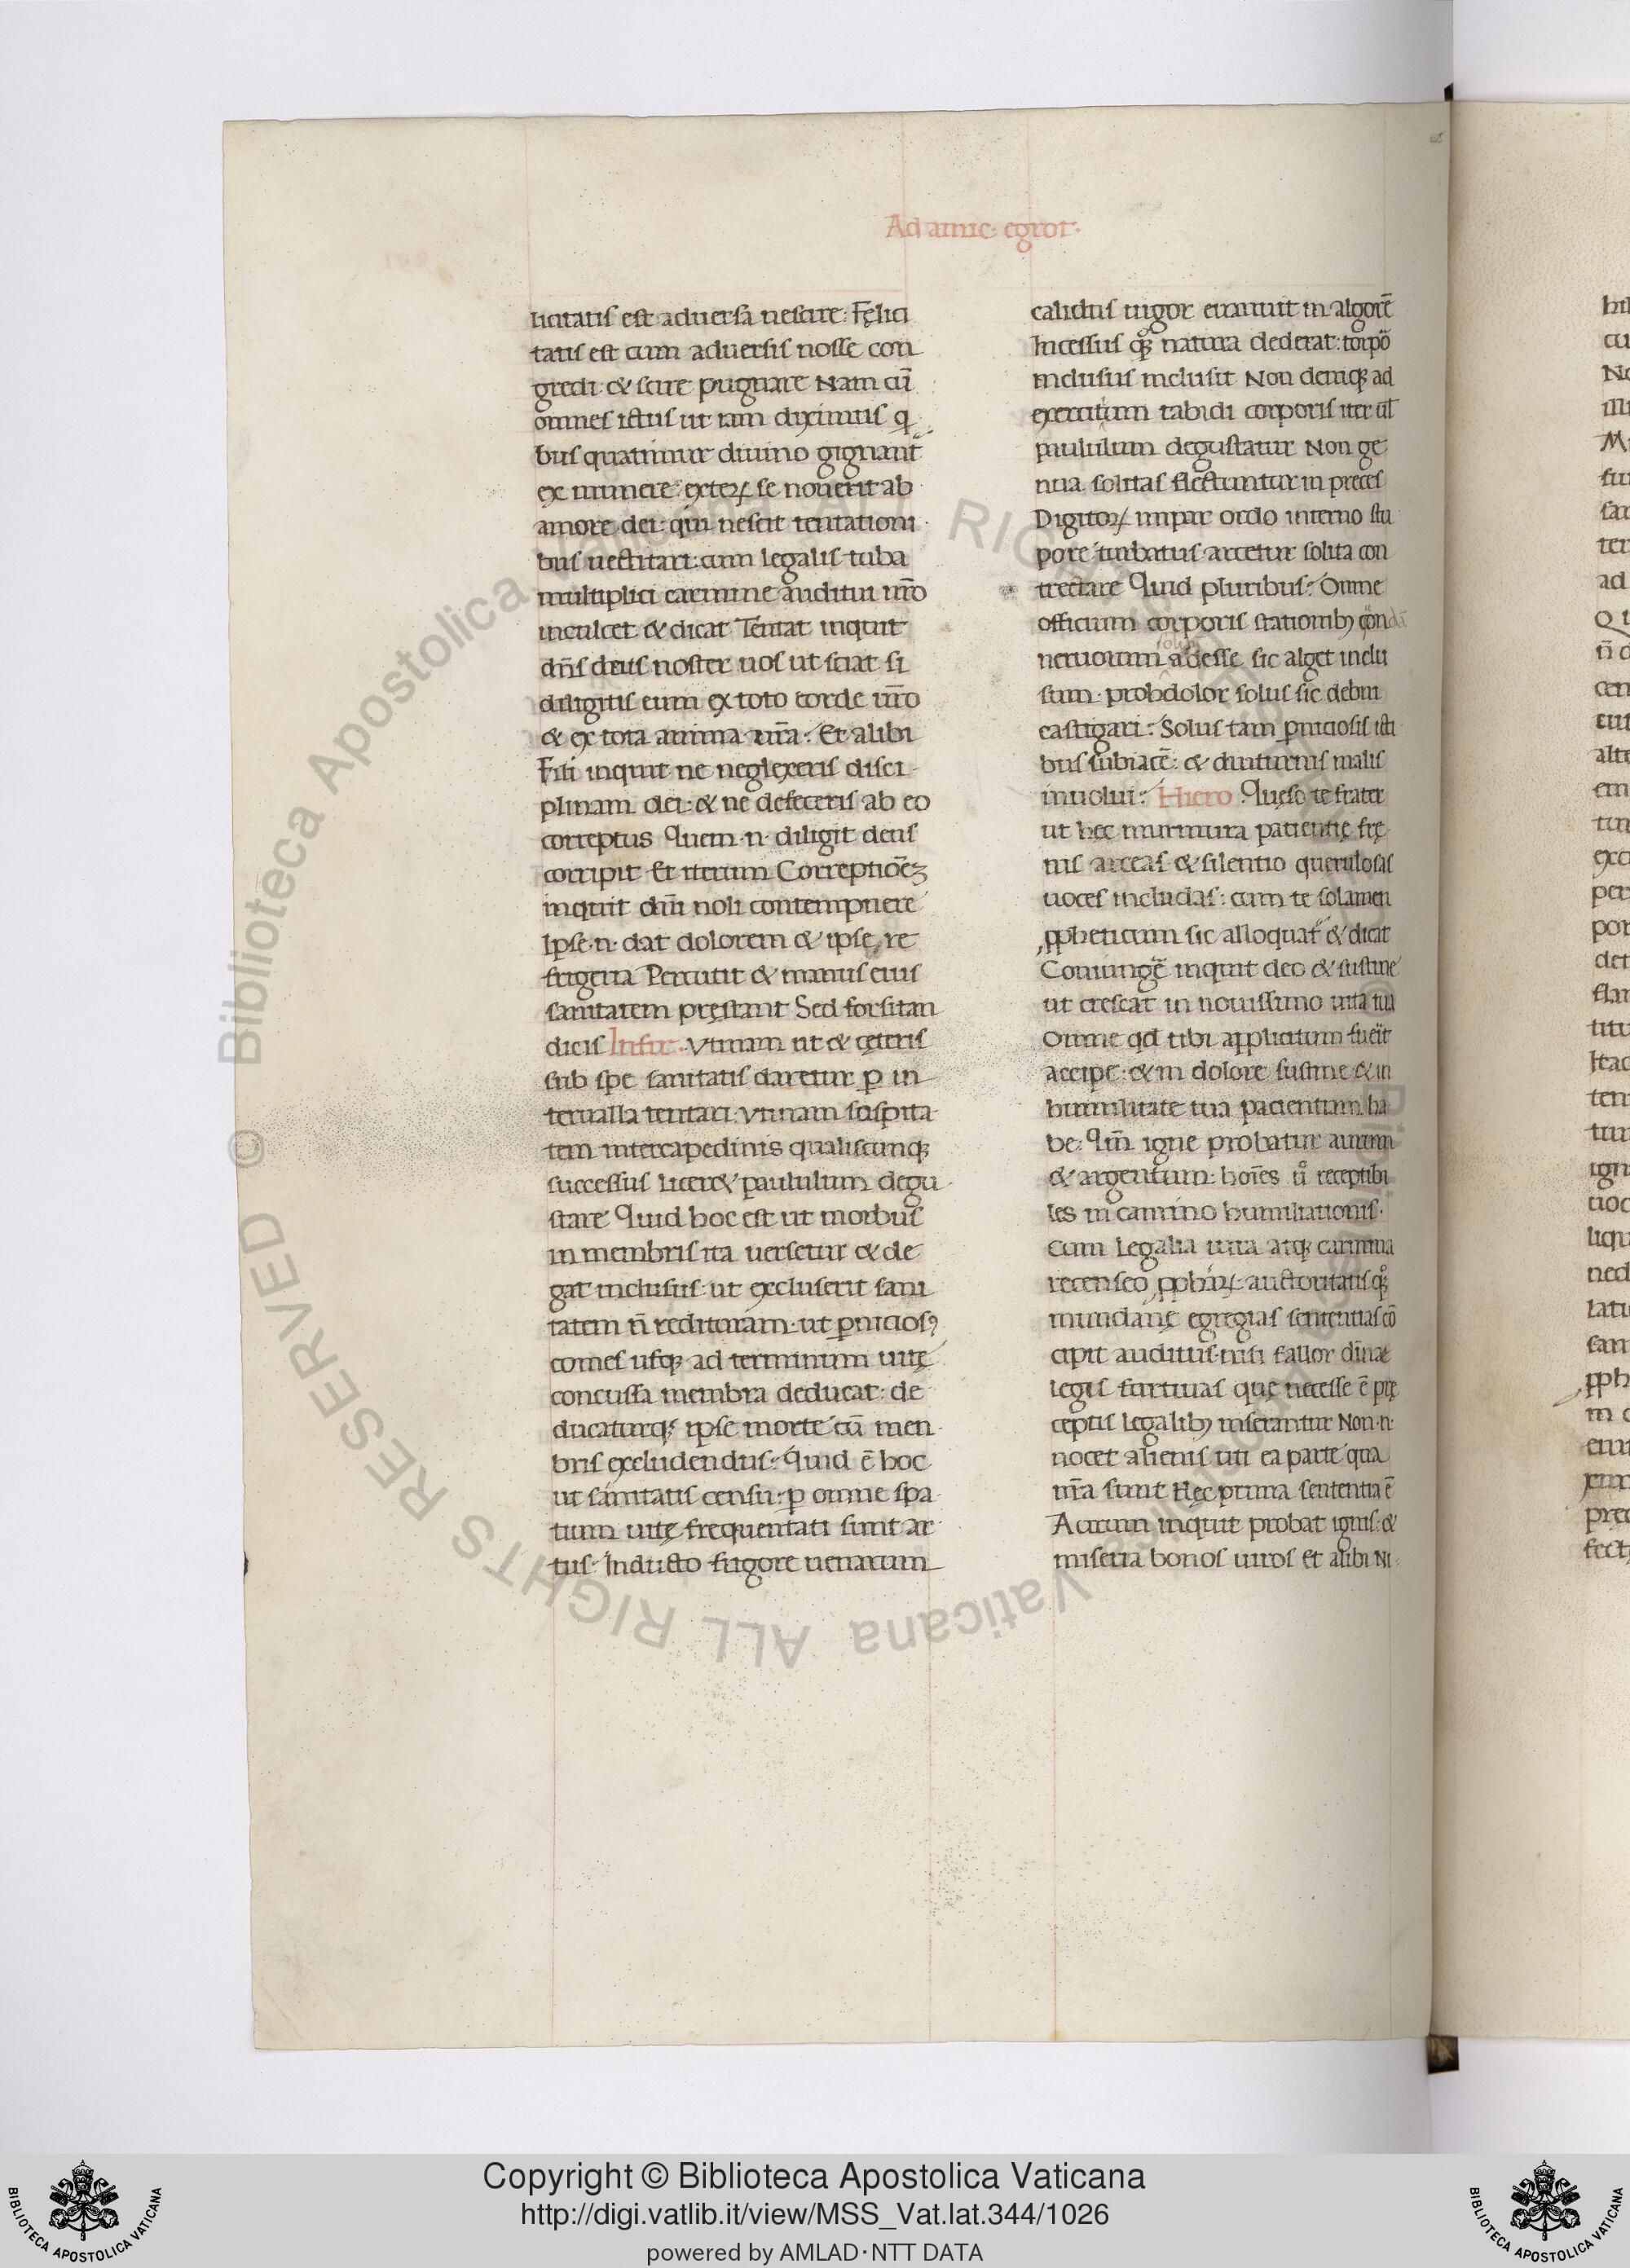 Ad amic· egrot·
licitatis est aduersa nescire: Fęlici
tatis est cum aduersis nosse con
gredi· & scire pugnare Nam cū
omnes ictus ut iam diximus q
bus quatimur diuino gignant̄
ex munere: exteꝝ se nouerit ab
amore dei· qui nescit tentationi
bus uestitari: cum legalis tuba
multiplici carmine auditui ur̄o
inculcet & dicat Tentat inquit
dn̄s deus noster uos ut sciat si
diligitis eum ex toto corde ur̄o
& ex tota anima ur̄a: Et alibi
Fili inquit ne neglexeris disci
plinam dei· & ne defeceris ab eo
correptus Quem ·n· diligit deus
corripit Et iterum Correptiōeʒ
inquit dn̄i noli contempnere
Ipse ·n· dat dolorem & ipse re
frigeria Percutit & manus eius
sanitatem pręstant Sed forsitan
dicis Infir· Vtinam ut & cęteris
sub spe sanitatis daretur p̱ in
terualla tentari· Vtinam sospita
tem intercapedinis qualiscunqȝ
successus licer& paululum degu
stare Quid hoc est ut morbus
in membris ita uersetur & de
gat inclusus· ut excluserit sani
tatem n̄ redituram· ut p̱niciosꝰ
comes usqȝ ad terminum uitę
concussa membra deducat: de
ducaturqȝ ipse morte cū mem
bris excludendus: Quid ē hoc
ut sanitatis censu: p̱ omne spa
tium uitę frequentati sunt ar
tus· Inducto frigore uenarum
calidus uigor euanuit in algorē
Incessus qͦȝ natura dederat: torpō
inclusus inclusit Non deniqȝ ad
exercitum tabidi corporis iter ul̄
paululum degustatur Non ge
nua solitas flectuntur in preces
Digitoꝝ impar ordo interno stu
pore turbatus arcetur solita con
trectare Quid pluribus: Omne
officium corporis stationibȝ con
neruorum adesse sic alget inclu
sum· prohdolor solus sic debui
castigari: Solus tam p̱niciosis ictu
bus subiacē: & diuturnis malis
inuolui: Hiero Quęso te frater
ut hęc murmura patientię frę
nis arceas & silentio querulosas
uoces includas: cum te solamen
ꝓpheticum sic alloquat̄ & dicat
Coniungē inquit deo & sustine
ut crescat in nouissimo uita tua
Omne qd tibi applicitum fuerit
accipe· & in dolore sustine & in
humilitate tua pacientiam ha
be: Qm̄ igne probatur aurum
& argentum: hoīes uͦ receptibi
les in camino humiliationis·
Cum legalia iura atqȝ carmina
recenseo ꝓphaꝝ· auctoritatis qͦȝ
mundanę egregias sententias cō
cipit auditus· nisi fallor diuinę
legis furtiuas que necesse ē prę
ceptis legalibȝ inserantur Non ·n·
nocet alienis uti ea parte qua
nr̄a sunt Hęc prima sententia ē
Aurum inquit probat ignis· &
miseria bonos uiros Et alibi Ni
Copyright © Biblioteca Apostolica Vaticana
http://digi.vatlib.it/view/MSS_Vat.lat.344/1026
powered by AMLAD·NTT DATA